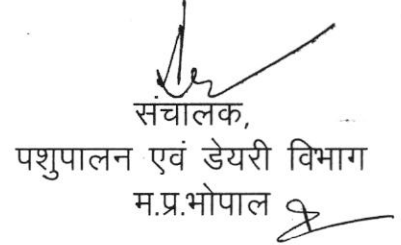 संचालक,
पशुपालन एवं डेयरी विभाग
म.प्र.भोपाल